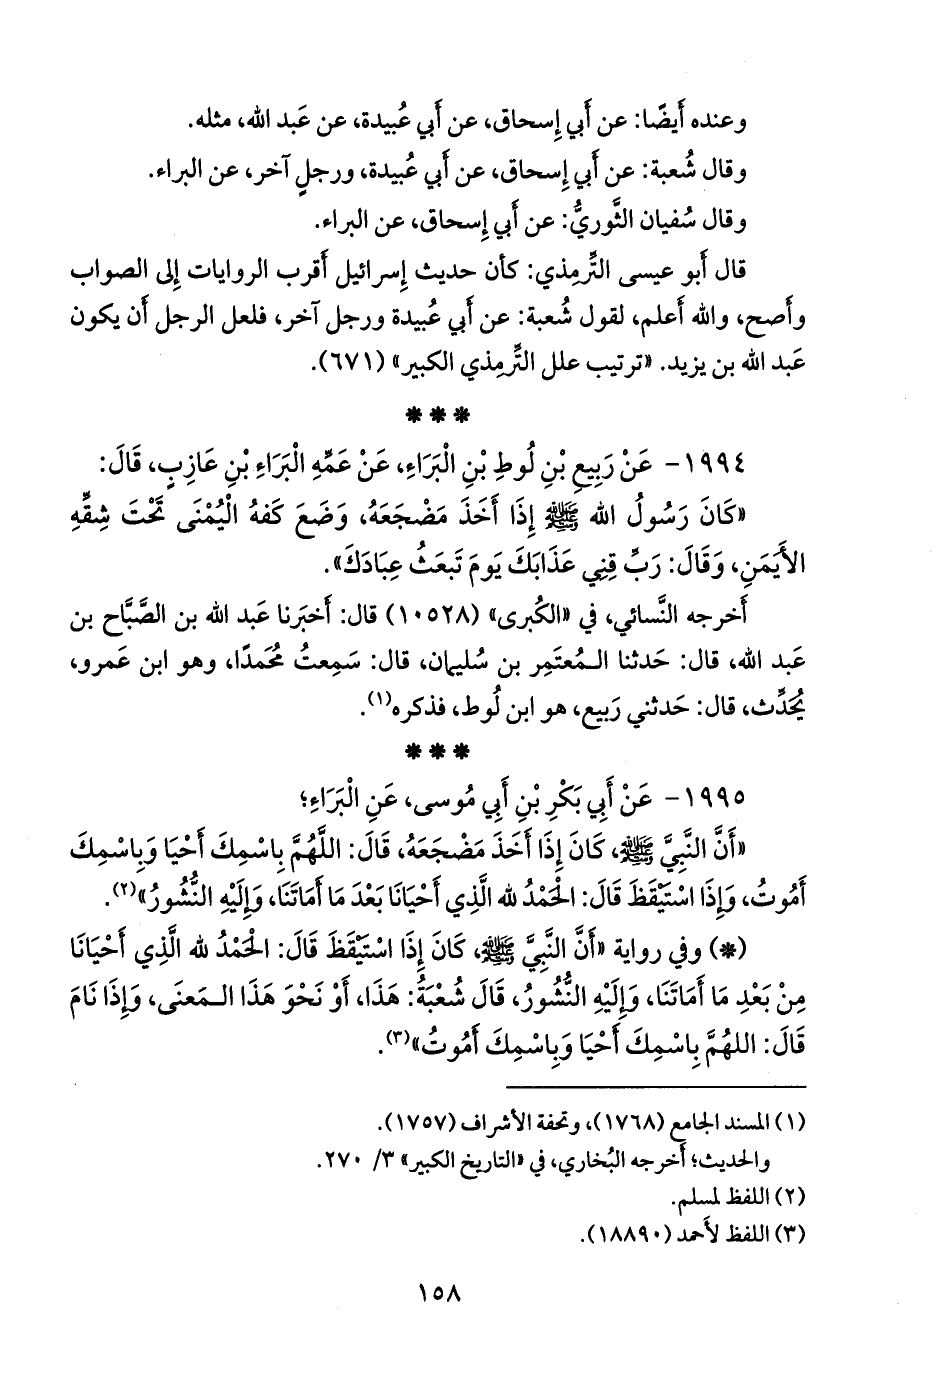 وعنده أَيضًا: عن أَبي إِسحاق، عن أَبي عُبيدة، عن عَبد الله، مثله.
وقال شُعبة: عن أَبي إِسحاق، عن أَبي عُبيدة، ورجلٍ آخر، عن البراء.
وقال سُفيان الثَّوريُّ: عن أَبي إِسحاق، عن البراء.
قال أَبو عيسى التِّرمِذي: كأن حديث إِسرائيل أَقرب الروايات إِلى الصواب
وأَصح، والله أَعلم، لقول شُعبة: عن أَبي عُبيدة ورجل آخر، فلعل الرجل أَن يكون
عَبد الله بن يزيد. «ترتيب علل التِّرمِذي الكبير» (٦٧١).
* * *
١٩٩٤- عَنْ رَبِيعِ بْنِ لُوطِ بْنِ الْبَرَاءِ، عَنْ عَمِّهِ الْبَرَاءِ بْنِ عَازِبٍ، قَالَ:
«كَانَ رَسُولُ الله ﷺ إِذَا أَخَذَ مَضْجَعَهُ، وَضَعَ كَفهُ الْيُمْنَى تَحْتَ شِقِّهِ
الأَيمَنِ، وَقَالَ: رَبِّ قِنِي عَذَابَكَ يَومَ تَبعَثُ عِبَادَكَ».
أَخرجه النَّسائي، في «الكُبرى» (١٠٥٢٨) قال: أَخبَرنا عَبد الله بن الصَّبَّاح بن
عَبد الله، قال: حَدثنا الـمُعتَمِر بن سُليمان، قال: سَمِعتُ مُحَمدًا، وهو ابن عَمرو،
يُحَدِّث، قال: حَدثني رَبيع، هو ابن لُوط، فذكره(١).
* * *
١٩٩٥- عَنْ أَبِي بَكْرِ بْنِ أَبِي مُوسى، عَنِ الْبَرَاءِ؛
«أَنَّ النَّبِيَّ ﷺ، كَانَ إِذَا أَخَذَ مَضْجَعَهُ، قَالَ: اللَّهُمَّ بِاسْمِكَ أَحْيَا وَبِاسْمِكَ
أَمُوتُ، وَإِذَا اسْتَيْقَظَ قَالَ: الحَمْدُ لله الَّذِي أَحْيَانَا بَعْدَ مَا أَمَاتَنَا، وَإِلَيْهِ النُّشُورُ»(٢).
(*) وفي رواية «أَنَّ النَّبِيَّ ﷺ، كَانَ إِذَا اسْتَيْقَظَ قَالَ: الحَمْدُ لله الَّذِي أَحْيَانَا
مِنْ بَعْدِ مَا أَمَاتَنَا، وَإِلَيْهِ النُّشُورُ، قَالَ شُعْبَةُ: هَذَا، أَوْ نَحْوَ هَذَا الـمَعنَى، وَإِذَا نَامَ
قَالَ: اللهُمَّ بِاسْمِكَ أَحْيَا وَبِاسْمِكَ أَمُوتُ»(٣).
(١) المسند الجامع (١٧٦٨)، وتحفة الأشراف (١٧٥٧).
والحديث؛ أَخرجه البُخاري، في «التاريخ الكبير» ٣/ ٢٧٠.
(٢) اللفظ لمسلم.
(٣) اللفظ لأَحمد (١٨٨٩٠).
١٥٨